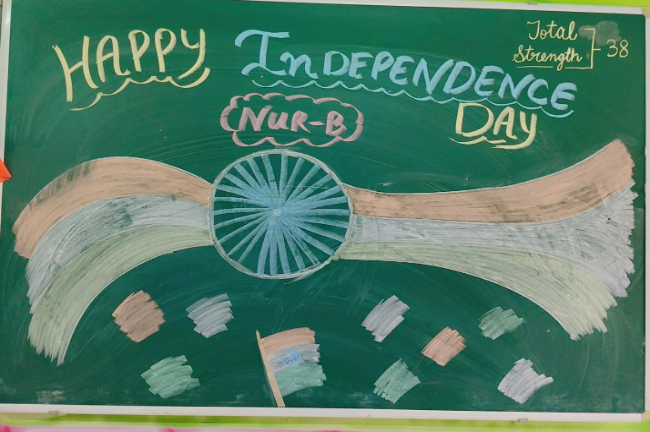 HAPPY INDEPENDENCE DAY
NUR-B
Total
Strength } 38